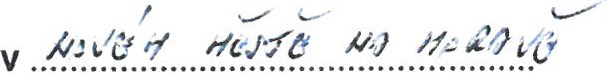 v Novém Městě na Moravě